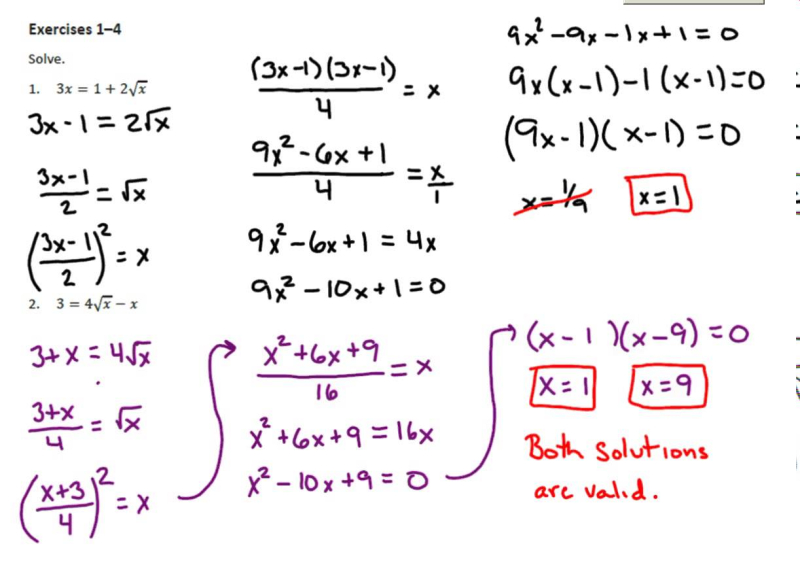 Exercises 1–4
Solve.
1. 3x = 1 + 2√x
3x - 1 = 2√x
(3x-1)/2 = √x
((3x-1)/2)² = x
((3x-1)(3x-1))/4 = x
(9x² - 6x + 1)/4 = x/1
9x² - 6x + 1 = 4x
9x² - 10x + 1 = 0
9x² - 9x - 1x + 1 = 0
9x(x-1) - 1(x-1) = 0
(9x-1)(x-1) = 0
x = 1/9 x = 1
2. 3 = 4√x − x
3 + x = 4√x
(3+x)/4 = √x
((x+3)/4)² = x
(x² + 6x + 9)/16 = x
x² + 6x + 9 = 16x
x² - 10x + 9 = 0
(x - 1)(x - 9) = 0
x = 1 x = 9
Both solutions
are valid.